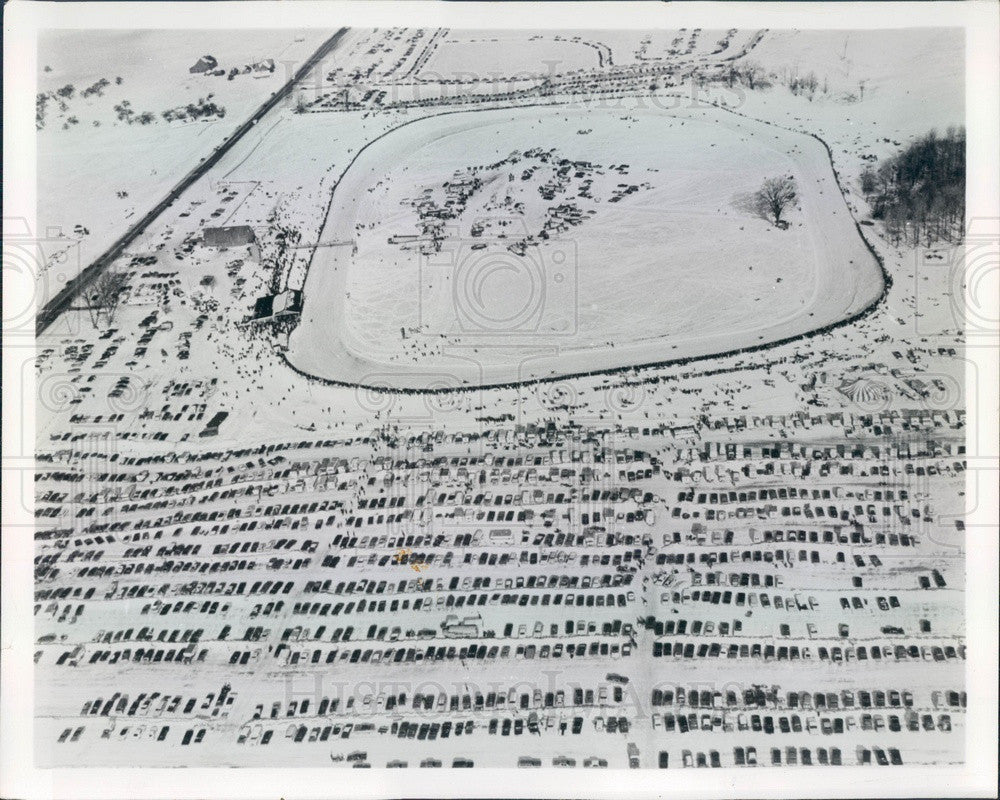 Historic Images
Historic Images